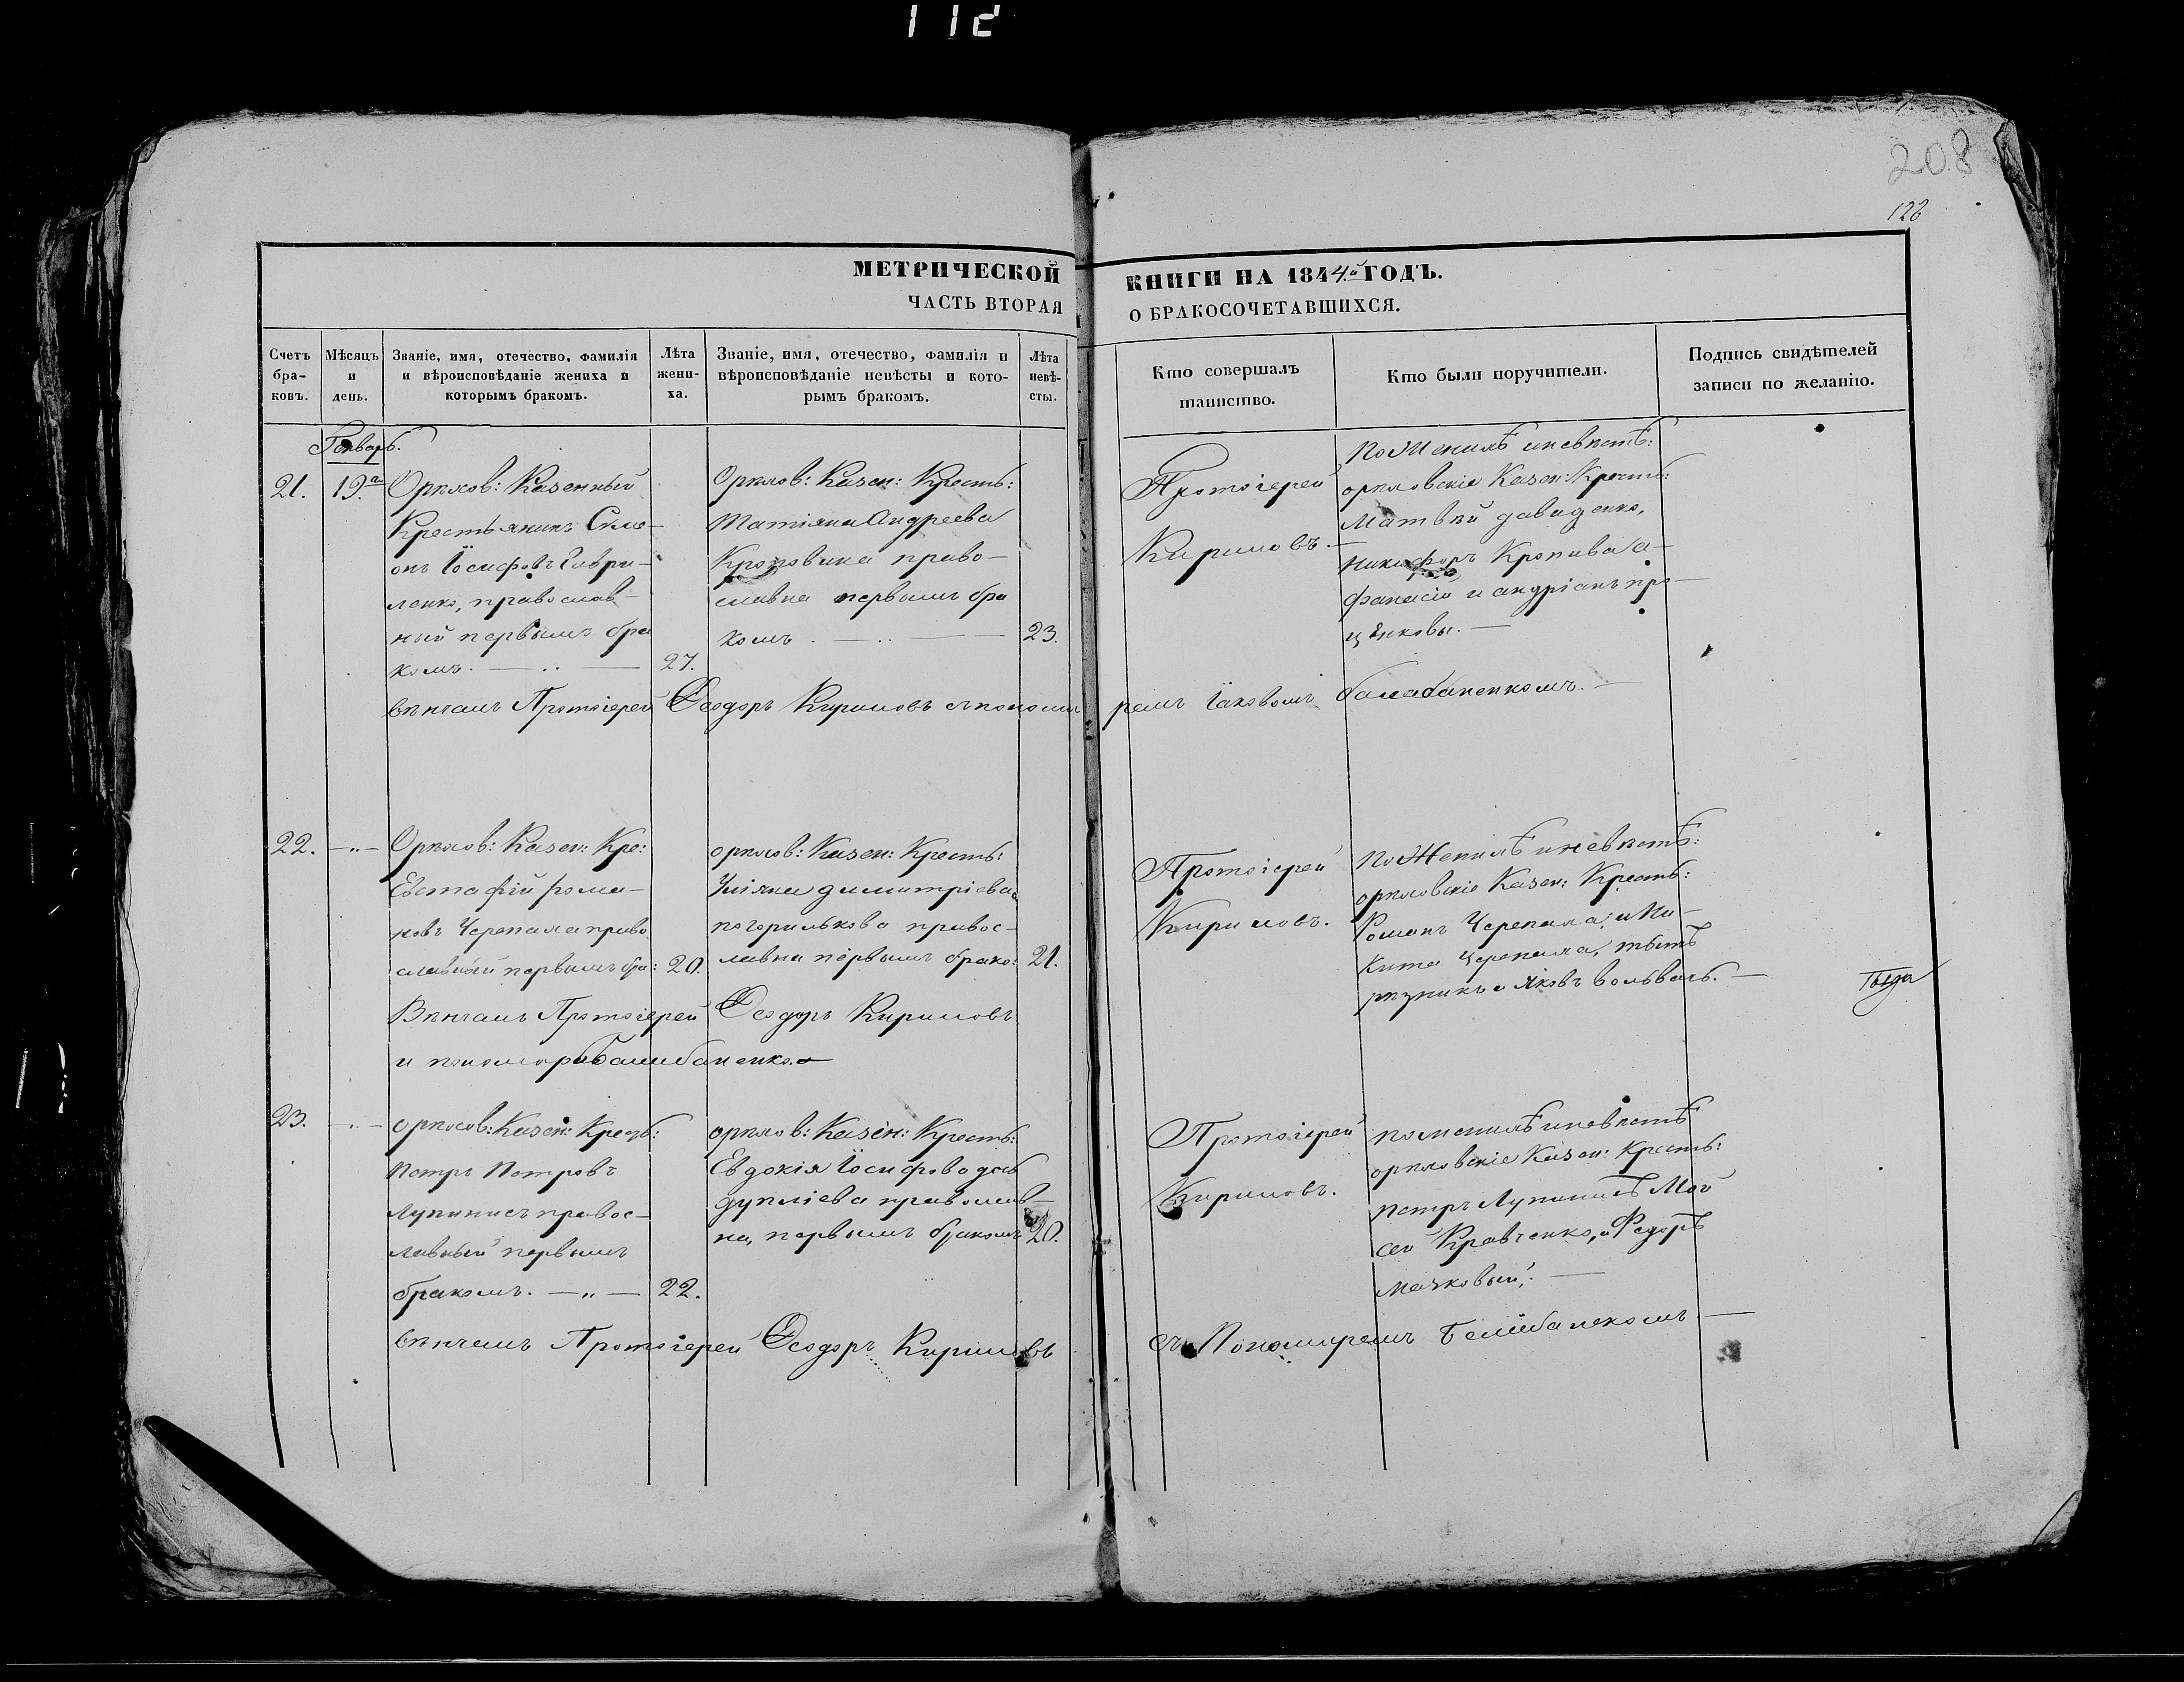 112
208
128
МЕТРИЧЕСКОЙ КНИГИ НА 1844.й ГОДЪ.
ЧАСТЬ ВТОРАЯ О БРАКОСОЧЕТАВШИХСЯ.
Счетъ бра- ковъ.
Мѣсяцъ и день.
Званіе, имя, отечество, фамилія и вѣроисповѣданіе жениха и которымъ бракомъ.
Лѣта жени- ха.
Званіе, имя, отечество, фамилія и вѣроисповѣданіе невѣсты и кото- рымъ бракомъ.
Лѣта невѣ- сты.
Кто совершалъ таинство.
Кто были поручители.
Подпись свидѣтелей записи по желанію.
Генварь.
21.
19.го
Орѣхов: Казенный
Крестьянинъ Симе-
онъ Іосифовъ Гаври-
ленко, православ-
ный первымъ бра
комъ.
27.
Орѣхов: Казен: Кресть:
Татіяна Андреева
право-
славна первымъ бра
комъ.
23.
Протоіерей
Кириловъ.
По Женихѣ и невѣстѣ:
орѣховскіе Казен: Кресть:
Матвѣй давиденко,
Никифоръ Кропива а-
фанасій и андріанъ про-
цѣнковы.
вѣнчалъ Протоіерей Ѳеодоръ Кириловъ с понома ремъ Іаковомъ балабаненкомъ.
22.
Орѣхов: Казен: Кре:
Евстафій рома-
новъ Черепаха право
славный первымъ бра:
20.
орѣхов: Казен: Кресть:
Уліяна димитріева
правос-
лавна первымъ брако:
21.
Протоіерей
Кириловъ.
По Женихѣ и невѣстѣ:
орѣховскіе Казен: Кресть:
Романъ Черепаха, и Ни-
кита Черепаха,
рѣзникъ и яковъ
Вѣнчалъ Протоіерей Ѳеодоръ Кириловъ
и пономарь балабаненко.
23.
орѣхов: Казен: Кресть:
Петръ Петровъ
правос-
лавный первымъ
бракомъ.
22.
орѣхов: Казен: Кресть:
Евдокія Іосифова дочь
православ-
на, первымъ бракомъ
20.
Протоіерей
Кириловъ.
по женихѣ и невѣстѣ
орѣховскіе Казен: Кресть:
петръ Мой
сей Кравченко, и Федоръ
вѣнчалъ Протоіерей Ѳеодоръ Кириловъ съ Пономаремъ балабанекомъ